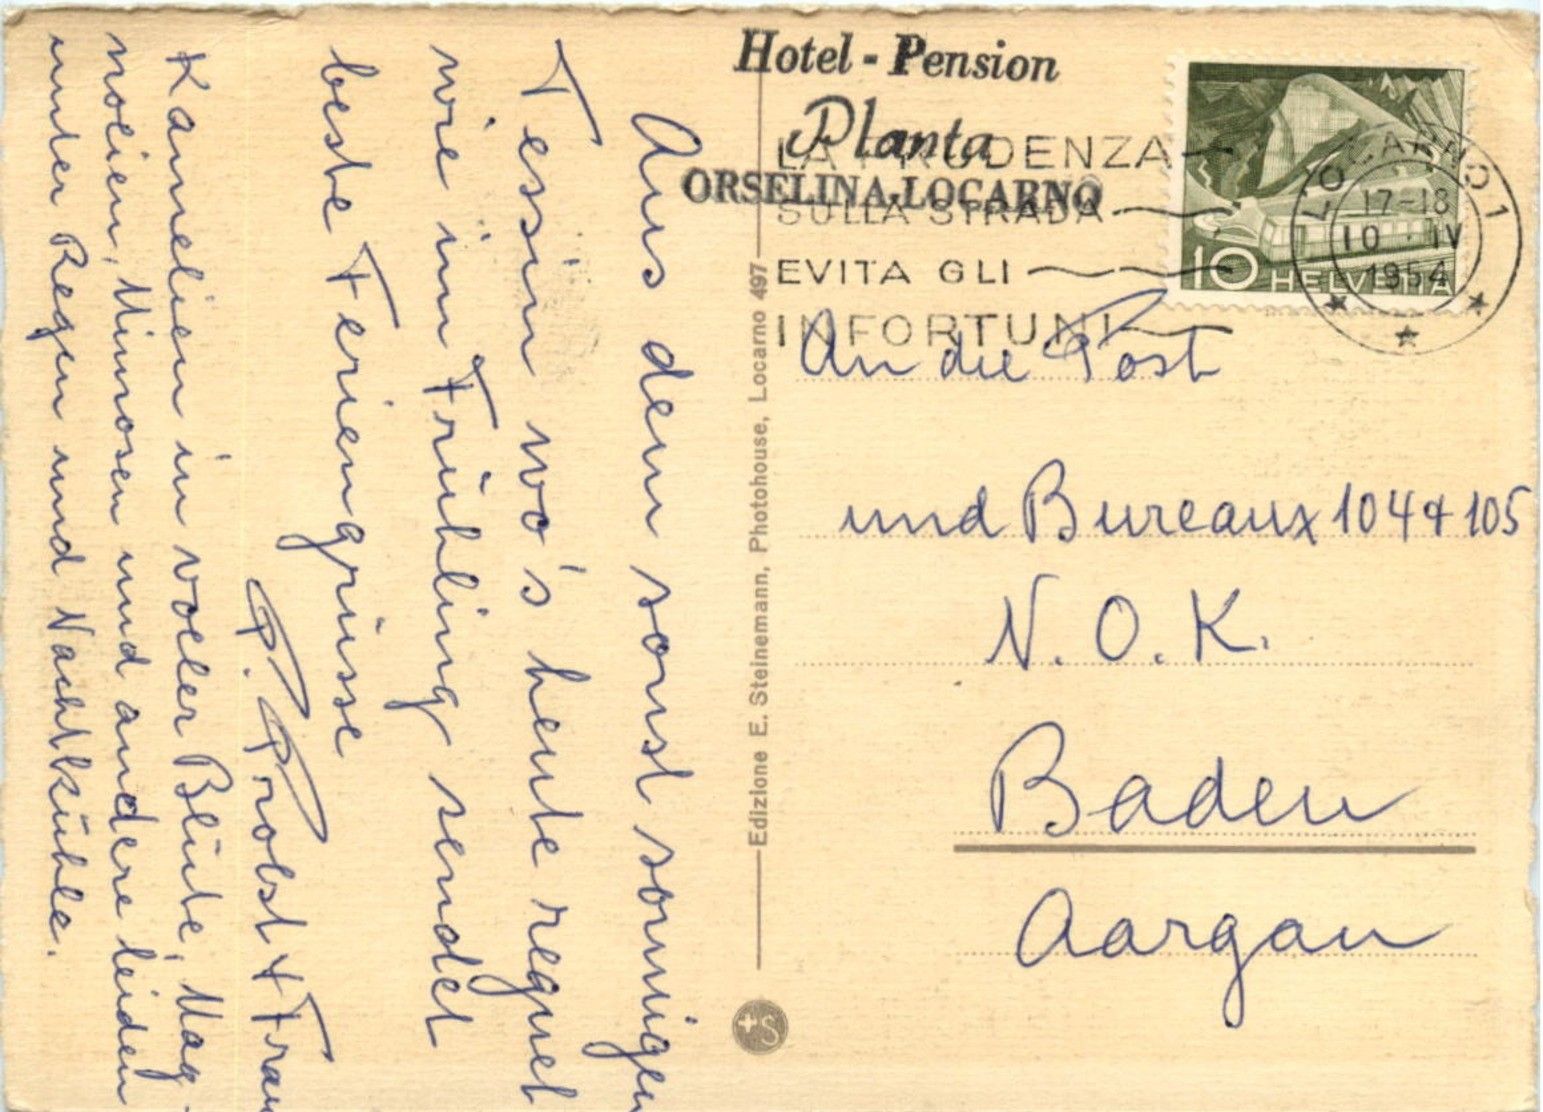 Hotel - Pension
Planta
ORSELINA-LOCARNO
LA PRUDENZA
SULLA STRADA
EVITA GLI
INFORTUNI
LOCARNO 1
17-18
10 · IV
1954
10 HELVETIA
An die Post
und Bureaux 104 & 105
N. O. K.
Baden
Aargau
Edizione E. Steinemann, Photohouse, Locarno 497
+S
Aus dem sonst sonnigen
Tessin wo's heute regnet
wie im Frühling sendet
beste Feriengrüsse
P. Probst & Frau
Kamelien in voller Blüte, Mag-
nolien, Mimosen und andere leiden
unter Regen und Nachtkühle.